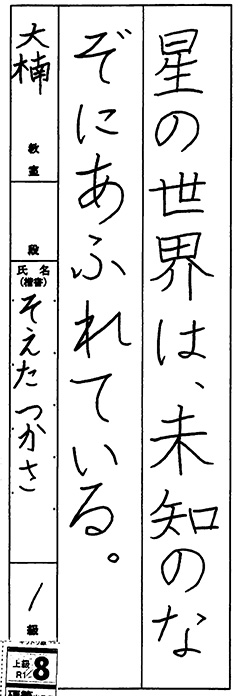 星の世界は、未知のな
ぞにあふれている。
大楠 教室
段
氏名
(楷書)
そえたつかさ
1 級
上級
R1/8